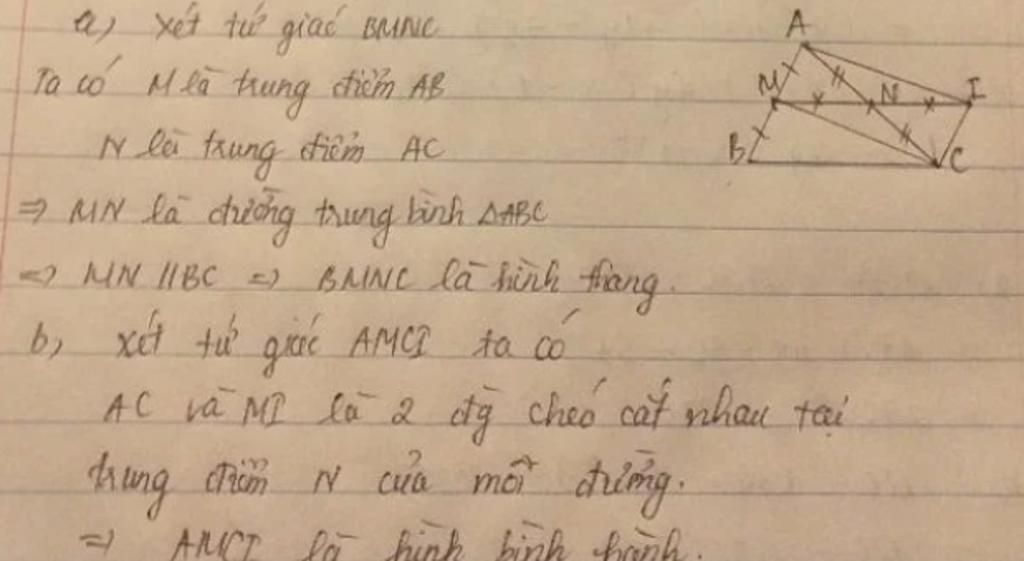 a) Xét tứ giác BMNC
Ta có M là trung điểm AB
N là trung điểm AC
⇒ MN là đường trung bình △ABC
⇒ MN // BC ⇒ BMNC là hình thang.
b, Xét tứ giác AMCI ta có
AC và MI là 2 đg chéo cắt nhau tại
trung điểm N của mỗi đường.
⇒ AMCI là hình bình hành.
A
M
N
I
B
C